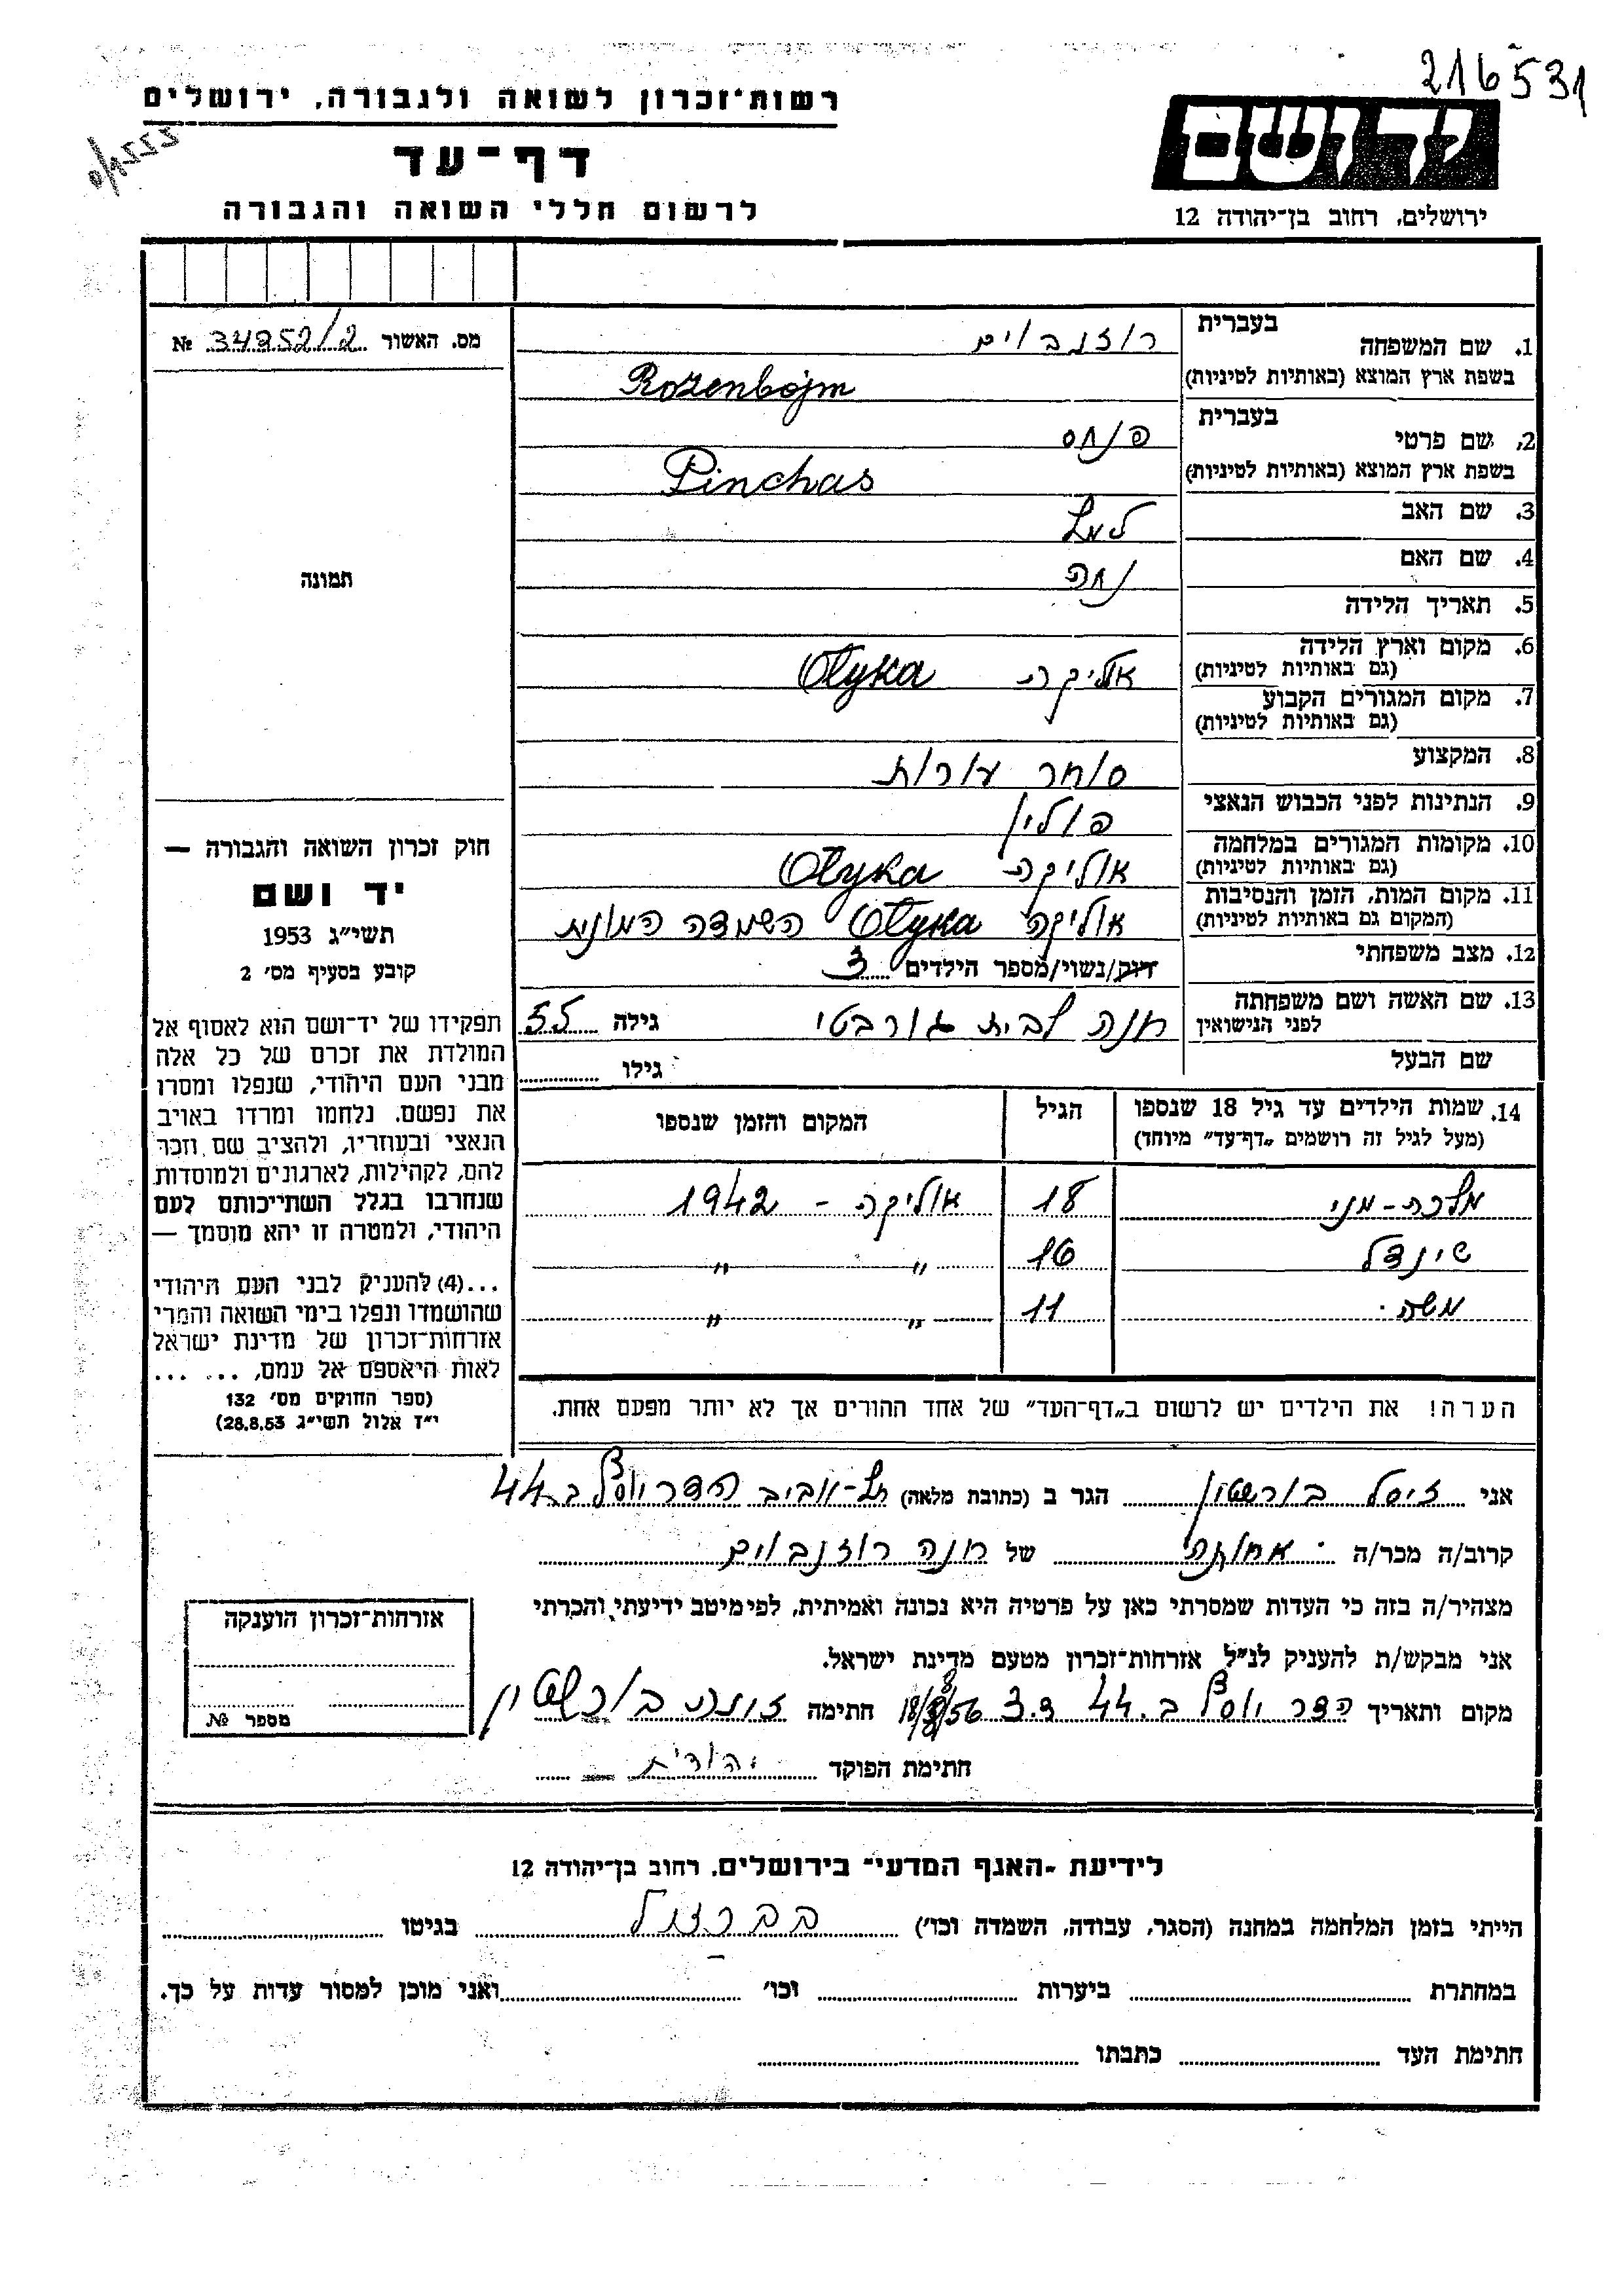 216531
רשות־זכרון לשואה ולגבורה, ירושלים
דף־עד
לרשום חללי השואה והגבורה
יד ושם
ירושלים, רחוב בן־יהודה 12
מס. האשור 34252/2 №
תמונה
חוק זכרון השואה והגבורה —
יד ושם
תשי״ג 1953
קובע בסעיף מס׳ 2
תפקידו של יד־ושם הוא לאסוף אל
המולדת את זכרם של כל אלה
מבני העם היהודי, שנפלו ומסרו
את נפשם, נלחמו ומרדו באויב
הנאצי ובעוזריו, ולהציב שם וזכר
להם, לקהילות, לארגונים ולמוסדות
שנחרבו בגלל השתייכותם לעם
היהודי, ולמטרה זו יהא מוסמך —
...(4) להעניק לבני העם היהודי
שהושמדו ונפלו בימי השואה והמרי
אזרחות־זכרון של מדינת ישראל
לאות היאספם אל עמם, ... ...
(ספר החוקים מס׳ 132
י״ז אלול תשי״ג 28.8.53)
1. שם המשפחה בעברית רוזנבוים
בשפת ארץ המוצא (באותיות לטיניות) Rozenbojm
2. שם פרטי בעברית פנחס
בשפת ארץ המוצא (באותיות לטיניות) Pinchas
3. שם האב למל
4. שם האם נחה
5. תאריך הלידה
6. מקום וארץ הלידה
(גם באותיות לטיניות) אליקה Olyka
7. מקום המגורים הקבוע
(גם באותיות לטיניות)
8. המקצוע סוחר עורות
9. הנתינות לפני הכבוש הנאצי פולין
10. מקומות המגורים במלחמה
(גם באותיות לטיניות) אוליקה Olyka
11. מקום המות, הזמן והנסיבות
(המקום גם באותיות לטיניות) אוליקה Olyka השמדה המונית
12. מצב משפחתי רווק/נשוי/מספר הילדים 3
13. שם האשה ושם משפחתה
לפני הנישואין חנה לבית גורבטי גילה 55
שם הבעל גילו
14. שמות הילדים עד גיל 18 שנספו הגיל המקום והזמן שנספו
(מעל לגיל זה רושמים „דף־עד״ מיוחד)
מלכה-מני 18 אוליקה - 1942
שינדל 16 " "
משה 11 " "
הערה! את הילדים יש לרשום ב„דף־העד״ של אחד ההורים אך לא יותר מפעם אחת.
אני זיסל בורשטין הגר ב (כתובת מלאה) תל-אביב הדר יוסף ב. 44
קרוב/ה מכר/ה אחותה של חנה רוזנבוים
מצהיר/ה בזה כי העדות שמסרתי כאן על פרטיה היא נכונה ואמיתית, לפי מיטב ידיעתי והכרתי
אני מבקש/ת להעניק לנ״ל אזרחות־זכרון מטעם מדינת ישראל.
מקום ותאריך הדר יוסף ב. 44 ד. 3 חתימה בורשטין
חתימת הפוקד יהודית
אזרחות־זכרון הוענקה
מספר №
לידיעת ״האגף המדעי״ בירושלים, רחוב בן־יהודה 12
הייתי בזמן המלחמה במחנה (הסגר, עבודה, השמדה וכו׳) בברזיל בגיטו
במחתרת ביערות וכו׳ ואני מוכן למסור עדות על כך.
חתימת העד כתבתו